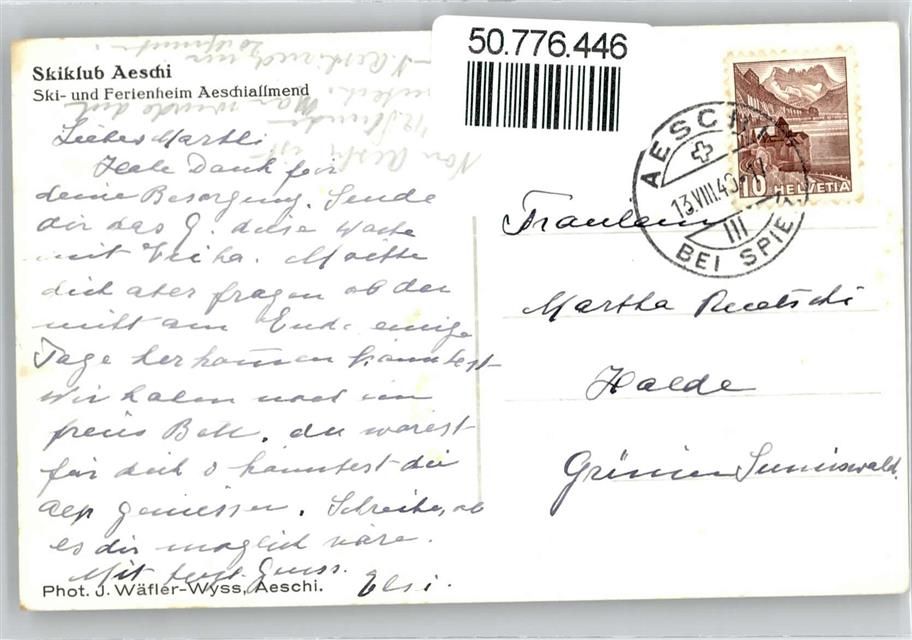 50.776.446
Skiklub Aeschi
Ski- und Ferienheim Aeschiallmend
Liebes Martli
Herte Dank für
deine Besorgung. Sende
dir das G. diese Woche
mit Erika. Möchte
dich aber fragen ob du
nicht am Ende einige
Tage herkommen könntest
Wir haben noch ein
freies Bett, du wärest
für dich & könntest die
alp geniessen. Schreibe, ob
es dir möglich wäre.
Mit herzl. Gruss.
Elsi.
Phot. J. Wäfler-Wyss, Aeschi.
AESCHI
13.VIII.43
III
BEI SPIEZ
10 HELVETIA
Fräulein
Martha Ruetschi
Halde
Grünen Sumiswald.